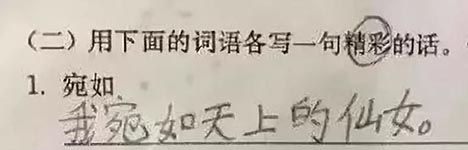 （二）用下面的词语各写一句精彩的话。
1. 宛如
我宛如天上的仙女。